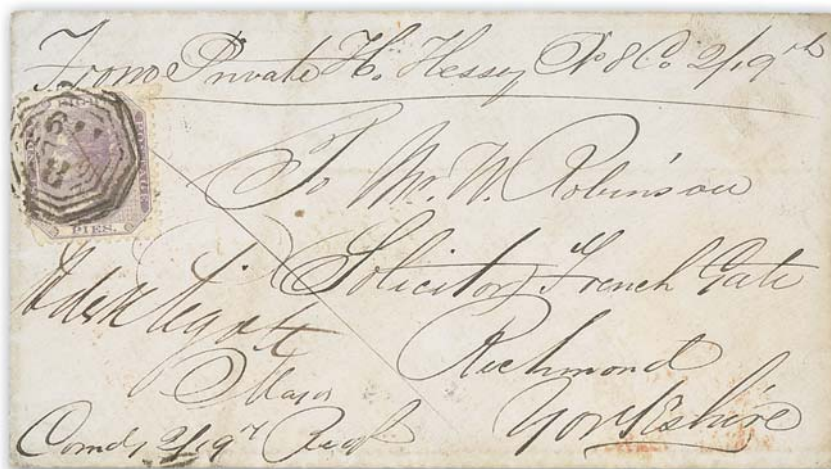 From Private H. Hessey No 8 Co 2/19th
To Mr. W. Robinson
Solicitor French Gate
Richmond
Yorkshire
Major
Comdg 2/19th Regt
EIGHT
PIES.